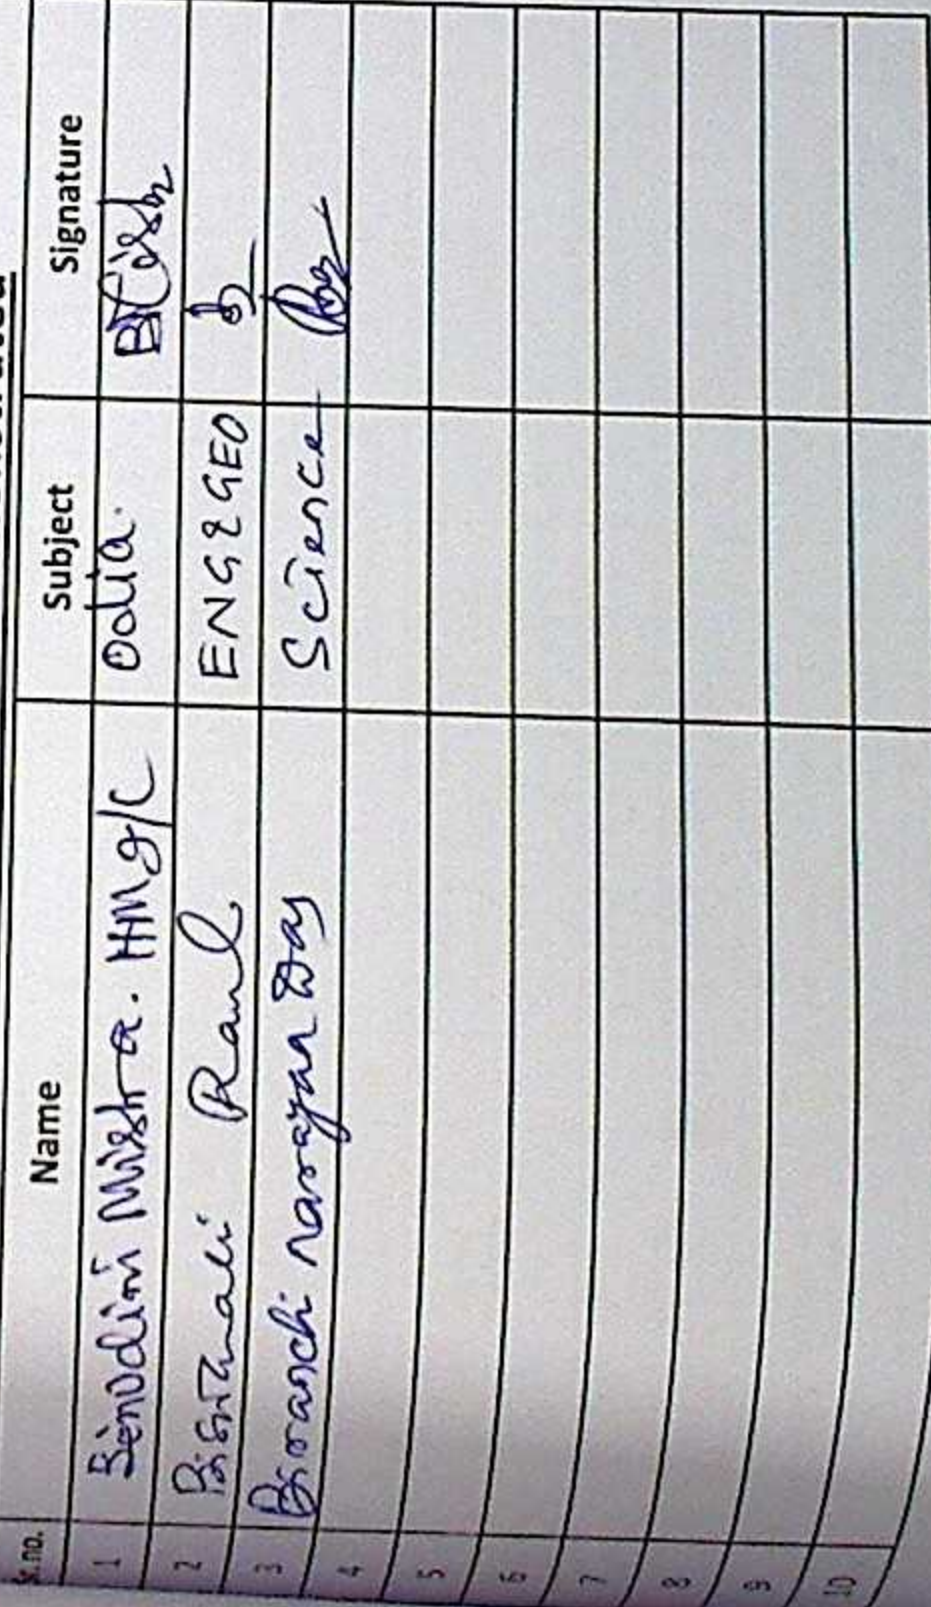 Sr.no. Name Subject Signature
1 Binodini Mishra. HM I/C Odia.
2 Raul ENG & GEO
3 Biranchi Narayan Das Science
4
5
6
7
8
9
10